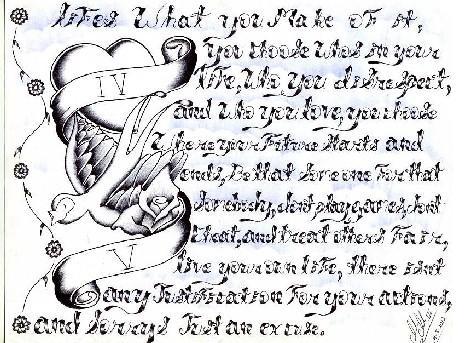 Lifes What you Make of it,
You choose Whos in your
life, Who you disrespect,
and Who you love, you choose
Where your Future Starts and
ends, Be that Someone For that
Somebody, dont play games, dont
Cheat, and treat others Fair,
live your own life, there isnt
any Justification For your actions,
and Sorrys Just an excuse.
IV
V